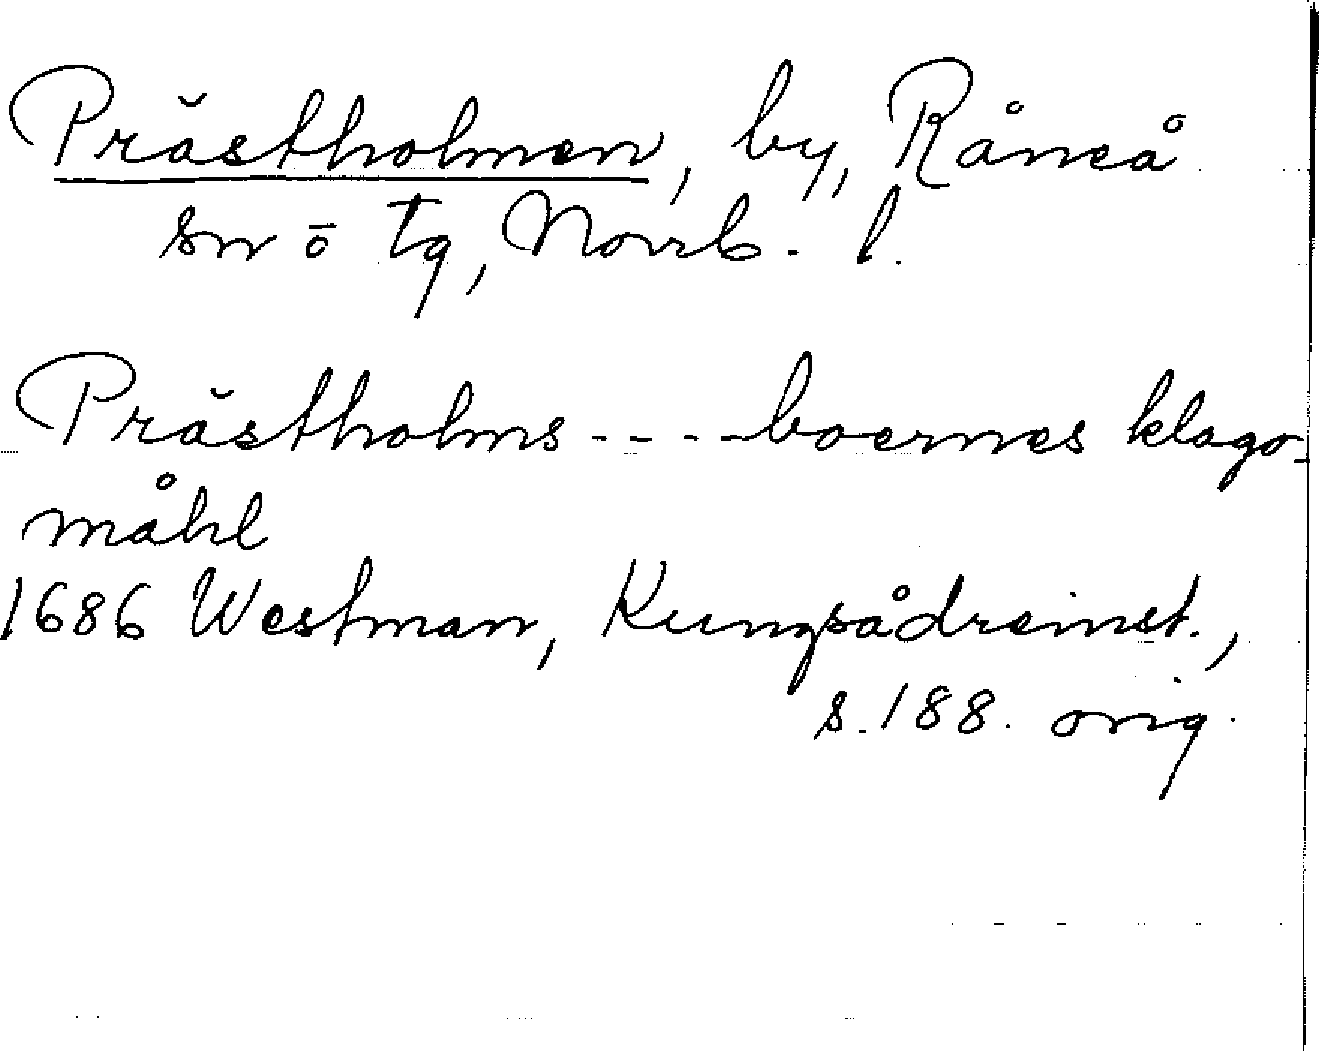 Prästholmen, by, Råneå
sn ō tg, Norrb. l.
Prästholms - - - - boernes klago-
måhl
1686 Westman, Kungsådreinst.,
s. 188. orig.